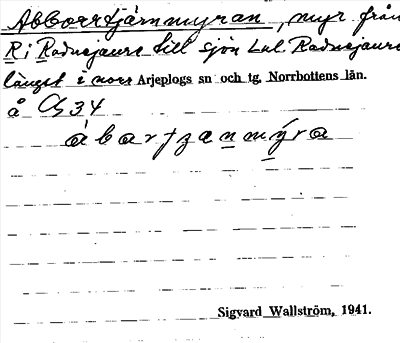 Abborrtjärnmyran, myr från
R i Radnejaure till sjön Lul Radnejaure
längst i norr Arjeplogs sn och tg, Norrbottens län.
å
Sigvard Wallström, 1941.